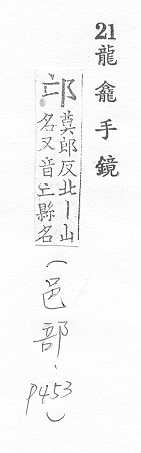 21 龍龕手鏡
邙
莫郎反北丨山
名又音亡縣名
(邑部, p453)